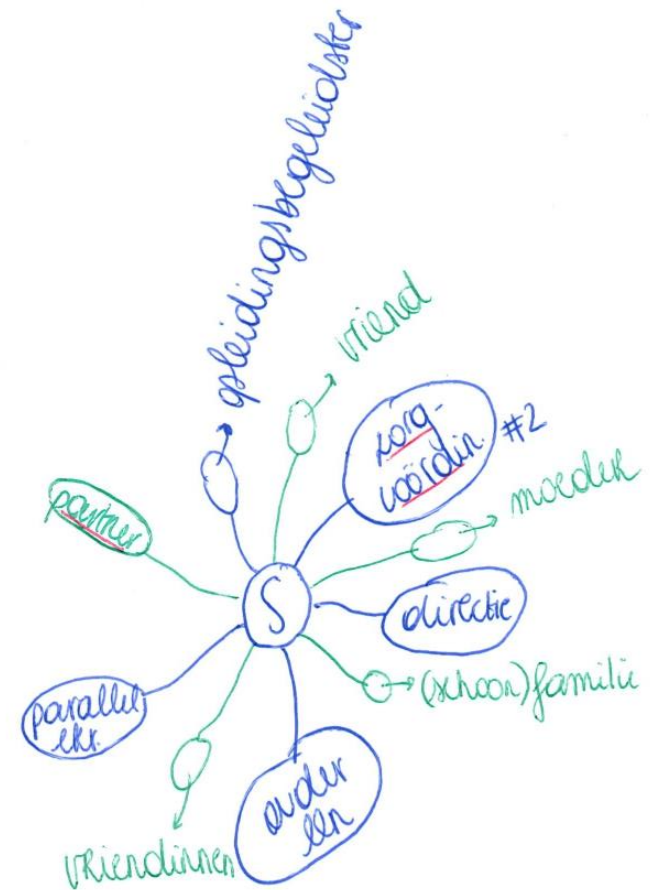 opleidingsbegeleidster
vriend
zorg-
coördin.
#2
moeder
partner
S
directie
(schoon)familie
parallel
lkr.
ouder
lln
vriendinnen